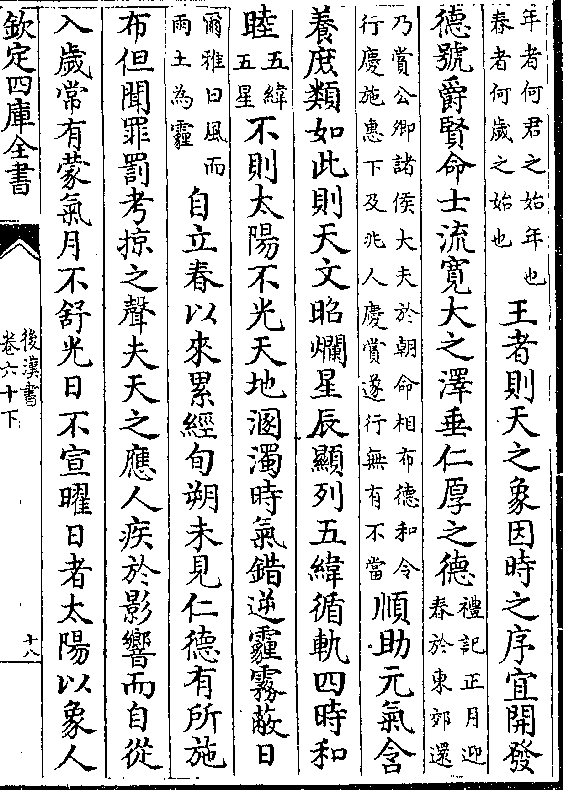 年者何君之始年也春者何歲之始也王者則天之象因時之序宜開發
德號爵賢命士流寬大之澤垂仁厚之德禮記正月迎春於東郊還
乃賞公卿諸侯大夫於朝命相布德和令行慶施惠下及兆人慶賞遂行無有不當順助元氣含
養庶類如此則天文昭爛星辰顯列五緯循軌四時和
睦五緯五星不則太陽不光天地溷濁時氣錯逆霾霧蔽日
爾雅曰風而雨土為霾自立春以來累經旬朔未見仁德有所施
布但聞罪罰考掠之聲夫天之應人疾於影響而自從
入歲常有蒙氣月不舒光日不宣曜日者太陽以象人
欽定四庫全書
後漢書
卷六十下
十八